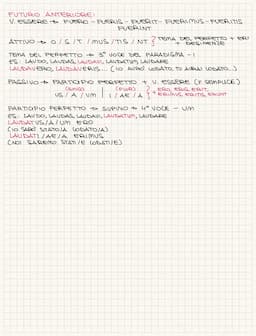 FUTURO ANTERIORE:
V. ESSERE → FUERO - FUERIS - FUERIT - FUERIMUS - FUERITIS
FUERINT
ATTIVO → O / S / T / MUS / TIS / NT } TEMA DEL PERFETTO + ERI
+ DESINENZE
TEMA DEL PERFETTO → 3° VOCE DEL PARADIGMA - I
ES. LAUDO, LAUDAS, LAUDAVI, LAUDATUM, LAUDARE
LAUDAVERO, LAUDAVERIS... (IO AVRÒ LODATO, TU AVRAI LODATO...)
PASSIVO → PARTICIPIO PERFETTO + V. ESSERE (F. SEMPLICE)
(SING) (PLUR)
US / A / UM | I / AE / A } + ERO, ERIS, ERIT,
ERIMUS, ERITIS, ERUNT
PARTICIPIO PERFETTO → SUPINO → 4° VOCE - UM
ES. LAUDO, LAUDAS, LAUDAVI, LAUDATUM, LAUDARE
LAUDATUS/A/UM ERO
(IO SARÒ STATO/A LODATO/A)
LAUDATI/AE/A ERIMUS
(NOI SAREMO STATI/E LODATI/E)